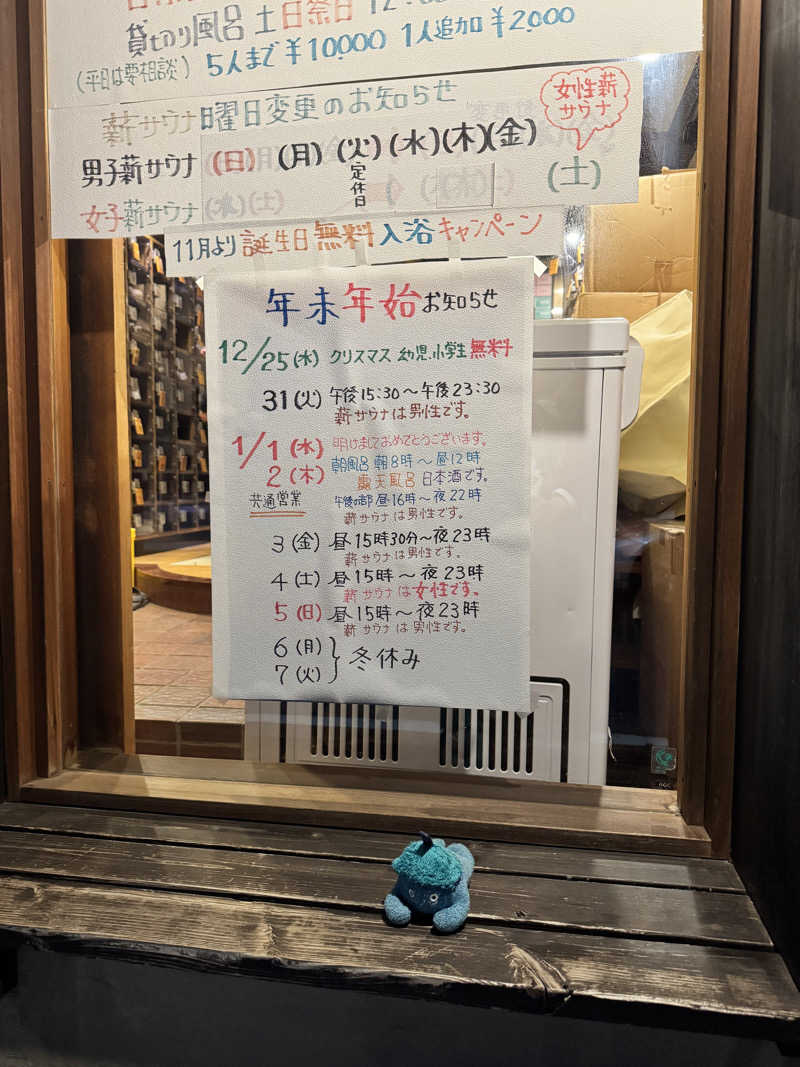 貸切り風呂 土日祭日 12:
(平日は要相談) 5人まで ¥10,000 1人追加 ¥2,000
薪サウナ曜日変更のお知らせ
女性薪サウナ
男子薪サウナ (日) (月) (火) (水) (木) (金)
定休日
(土)
女子薪サウナ (水) (土)
11月より誕生日無料入浴キャンペーン
年末年始お知らせ
12/25(水) クリスマス 幼児.小学生無料
31(火) 午後15:30～午後23:30
薪サウナは男性です。
1/1(水) 明けましておめでとうございます。
2(木) 朝風呂 朝8時～昼12時
露天風呂 日本酒です。
共通営業 午後の部 昼16時～夜22時
薪サウナは男性です。
3(金) 昼15時30分～夜23時
薪サウナは男性です。
4(土) 昼15時～夜23時
薪サウナは女性です。
5(日) 昼15時～夜23時
薪サウナは男性です。
6(月)
7(火) 冬休み